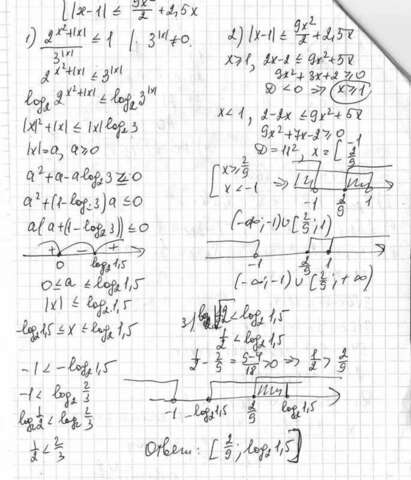 |x-1| ≤ 9x²/2 + 2,5x
1) 2^(x²+|x|) / 3^|x| ≤ 1 | · 3^|x| ≠ 0
2^(x²+|x|) ≤ 3^|x|
log₂ 2^(x²+|x|) ≤ log₂ 3^|x|
|x|² + |x| ≤ |x| log₂ 3
|x| = a, a ≥ 0
a² + a - a·log₂ 3 ≤ 0
a² + (1 - log₂ 3) a ≤ 0
a(a + (1 - log₂ 3)) ≤ 0
+ - +
0 log₂ 1,5
0 ≤ a ≤ log₂ 1,5
|x| ≤ log₂ 1,5
-log₂ 1,5 ≤ x ≤ log₂ 1,5
-1 < -log₂ 1,5
-1 < log₂ 2/3
log₂ 1/2 < log₂ 2/3
1/2 < 2/3
2) |x-1| ≤ 9x²/2 + 2,5x
x ≥ 1, 2x-2 ≤ 9x² + 5x
9x² + 3x + 2 ≥ 0
D < 0 => x ≥ 1
x < 1, 2-2x ≤ 9x² + 5x
9x² + 7x - 2 ≥ 0
D = 11², x = [ -1
2/9
[ x ≥ 2/9
x < -1 =>
-1 2/9 1
(-∞; -1) ∪ [2/9; 1)
-1 2/9 1
(-∞; -1) ∪ [2/9; +∞)
3) < log₂ 1,5
1/2 < log₂ 1,5
1/2 - 2/9 = 9-4/18 > 0 => 1/2 > 2/9
-1 -log₂ 1,5 2/9 log₂ 1,5
Ответ: [2/9; log₂ 1,5]